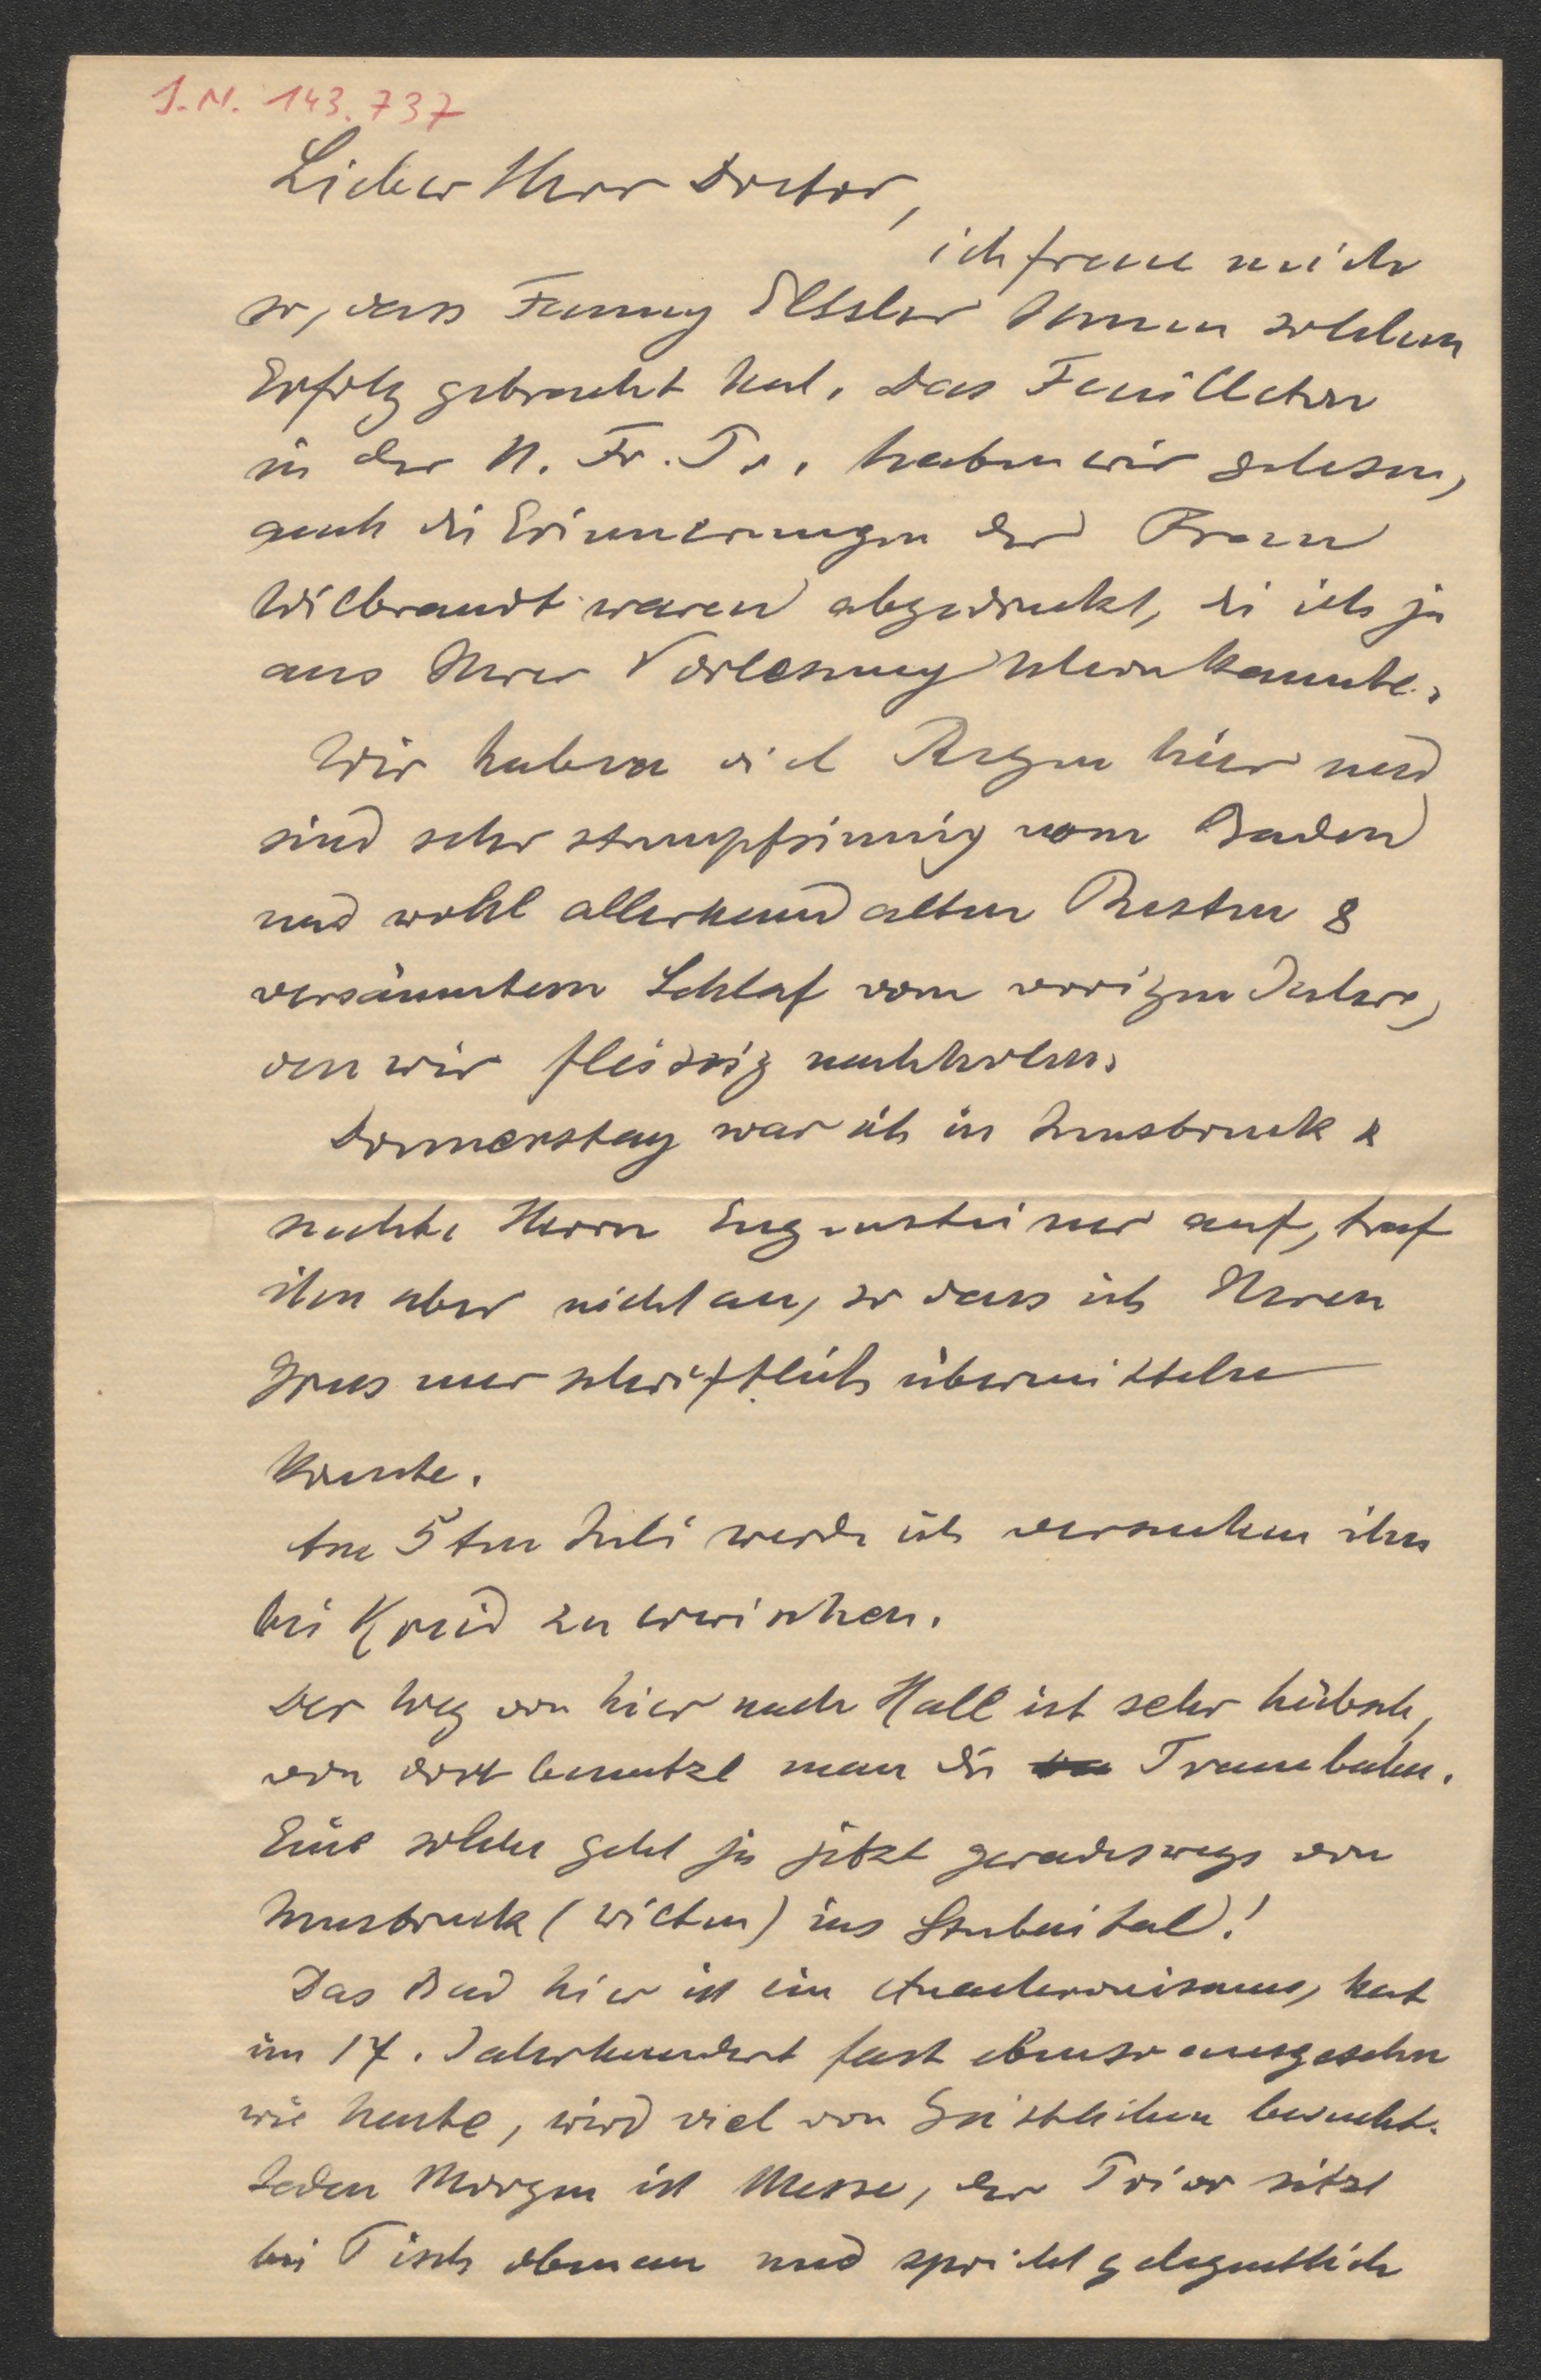 J.N. 143.737
Lieber Herr Doctor,
ich freue mich
so, dass Fanny Elssler Ihnen solchen
Erfolg gebracht hat. Das Feuilleton
in der N. Fr. Pr. haben wir gelesen,
auch die Erinnerungen der Frau
Wilbrandt waren abgedruckt, die ich ja
aus Ihrer Vorlesung schon kannte.
Wir haben viel Regen hier und
sind sehr stumpfsinnig vom Baden
und wohl allerhand alten Resten &
versäumtem Schlaf vom vorigen Jahre,
den wir fleissig nachholen.
Donnerstag war ich in Innsbruck &
suchte Herrn Eugensteiner auf, traf
ihn aber nicht an, so dass ich Ihren
Grus nur schriftlich übermitteln
konnte.
Am 5ten Juli werde ich versuchen ihn
bei zu erwischen.
Der Weg von hier nach Hall ist sehr hübsch,
von dort benutzt man die Trambahn.
Eine solche geht ja jetzt geradeswegs von
Innsbruck (Wilten) ins Stubaital!
Das Bad hier ist ein Anachronismus, hat
im 17. Jahrhundert fast ebenso ausgesehn
wie heute, wird viel von Geistlichen besucht.
Jeden Morgen ist Messe, der Prior sitzt
bei Tisch obenan und spricht gelegentlich